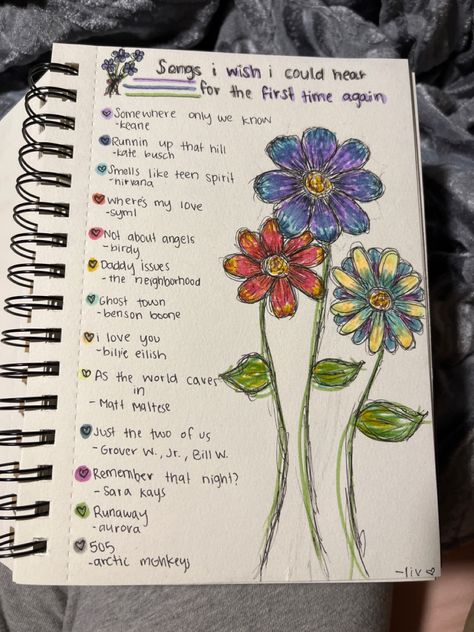 Songs i wish i could hear
for the first time again
Somewhere only we know
-keane
Runnin up that hill
-kate busch
Smells like teen spirit
-nirvana
where's my love
-syml
Not about angels
-birdy
Daddy issues
-the neighborhood
Ghost town
-benson boone
i love you
-billie eilish
As the world caves
in
- Matt Maltese
Just the two of us
- Grover W., Jr., Bill W.
Remember that night?
- Sara kays
Runaway
- aurora
505
-arctic monkeys
-liv